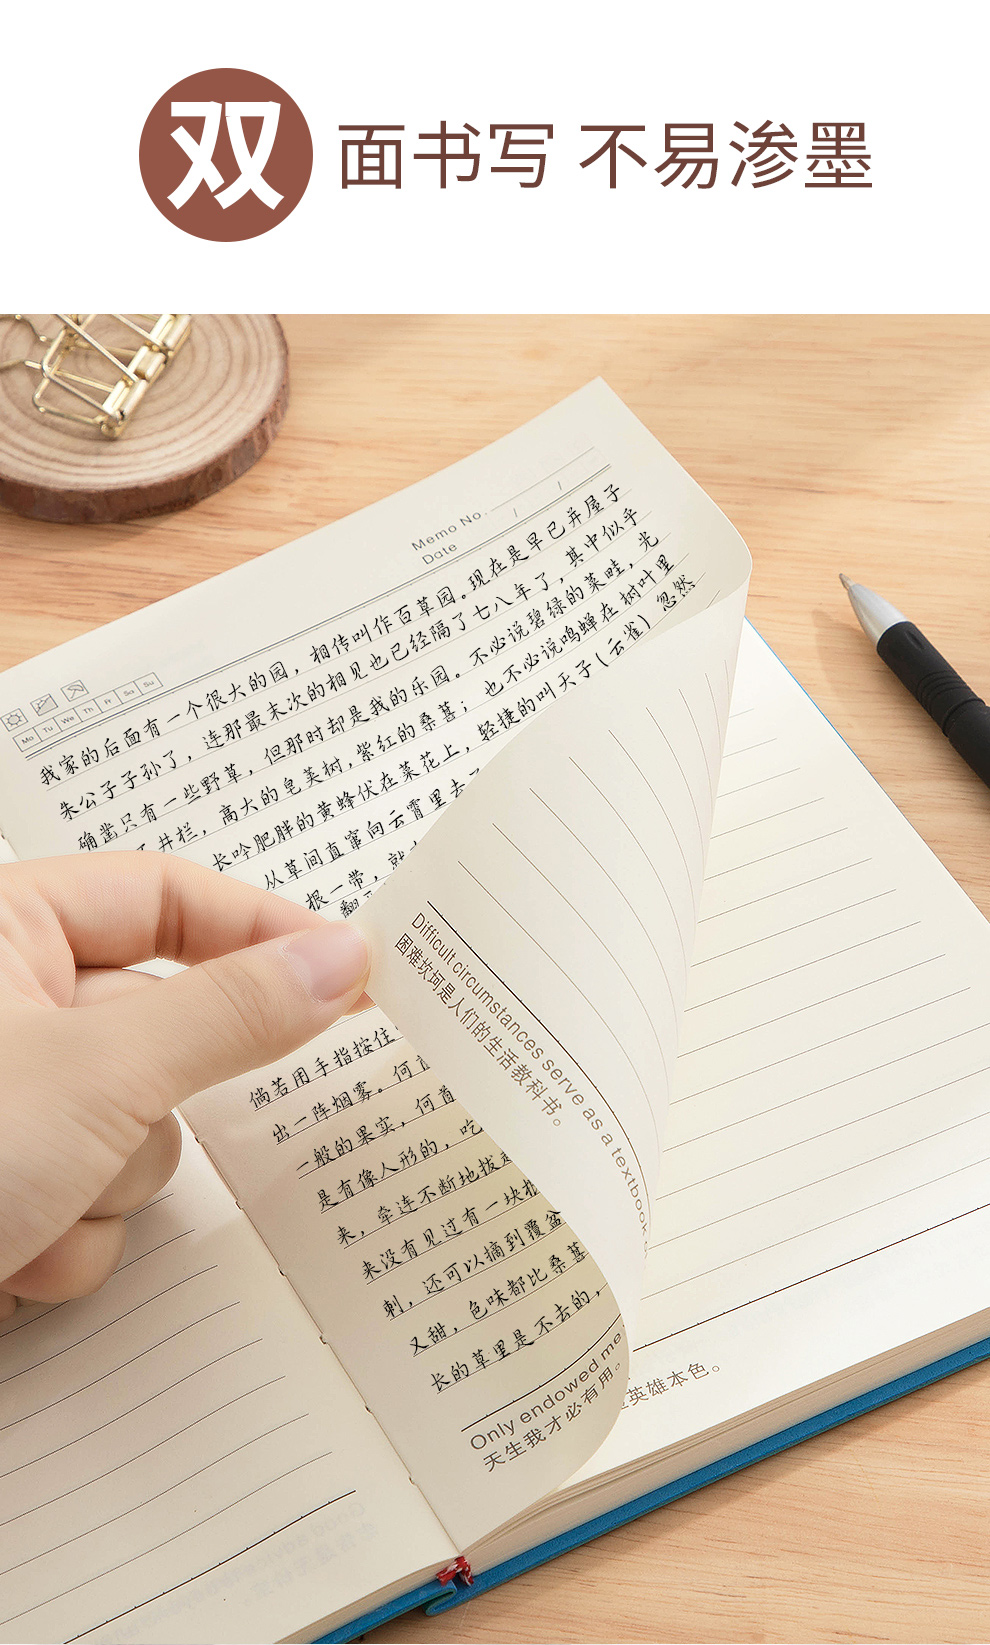 双面书写 不易渗墨
Memo No.
Date / /
Mo Tu We Th Fr Sa Su
我家的后面有一个很大的园，相传叫作百草园。现在是早已并屋子
朱公子子孙了，连那最末次的相见也已经隔了七八年了，其中似乎
确凿只有一些野草，但那时却是我的乐园。不必说碧绿的菜畦，光
井栏，高大的皂荚树，紫红的桑葚；也不必说鸣蝉在树叶里
长吟肥胖的黄蜂伏在菜花上，轻捷的叫天子（云雀）忽然
从草间直窜向云霄里去
根一带，就
翻
倘若用手指按住
出一阵烟雾。何首
一般的果实，何首
是有像人形的，吃
来，牵连不断地拔
来没有见过有一块根
刺，还可以摘到覆盆
又甜，色味都比桑葚
长的草里是不去的，
Only endowed me
天生我才必有用。
Difficult circumstances serve as a textbook
困难坎坷是人们的生活教科书。
英雄本色。